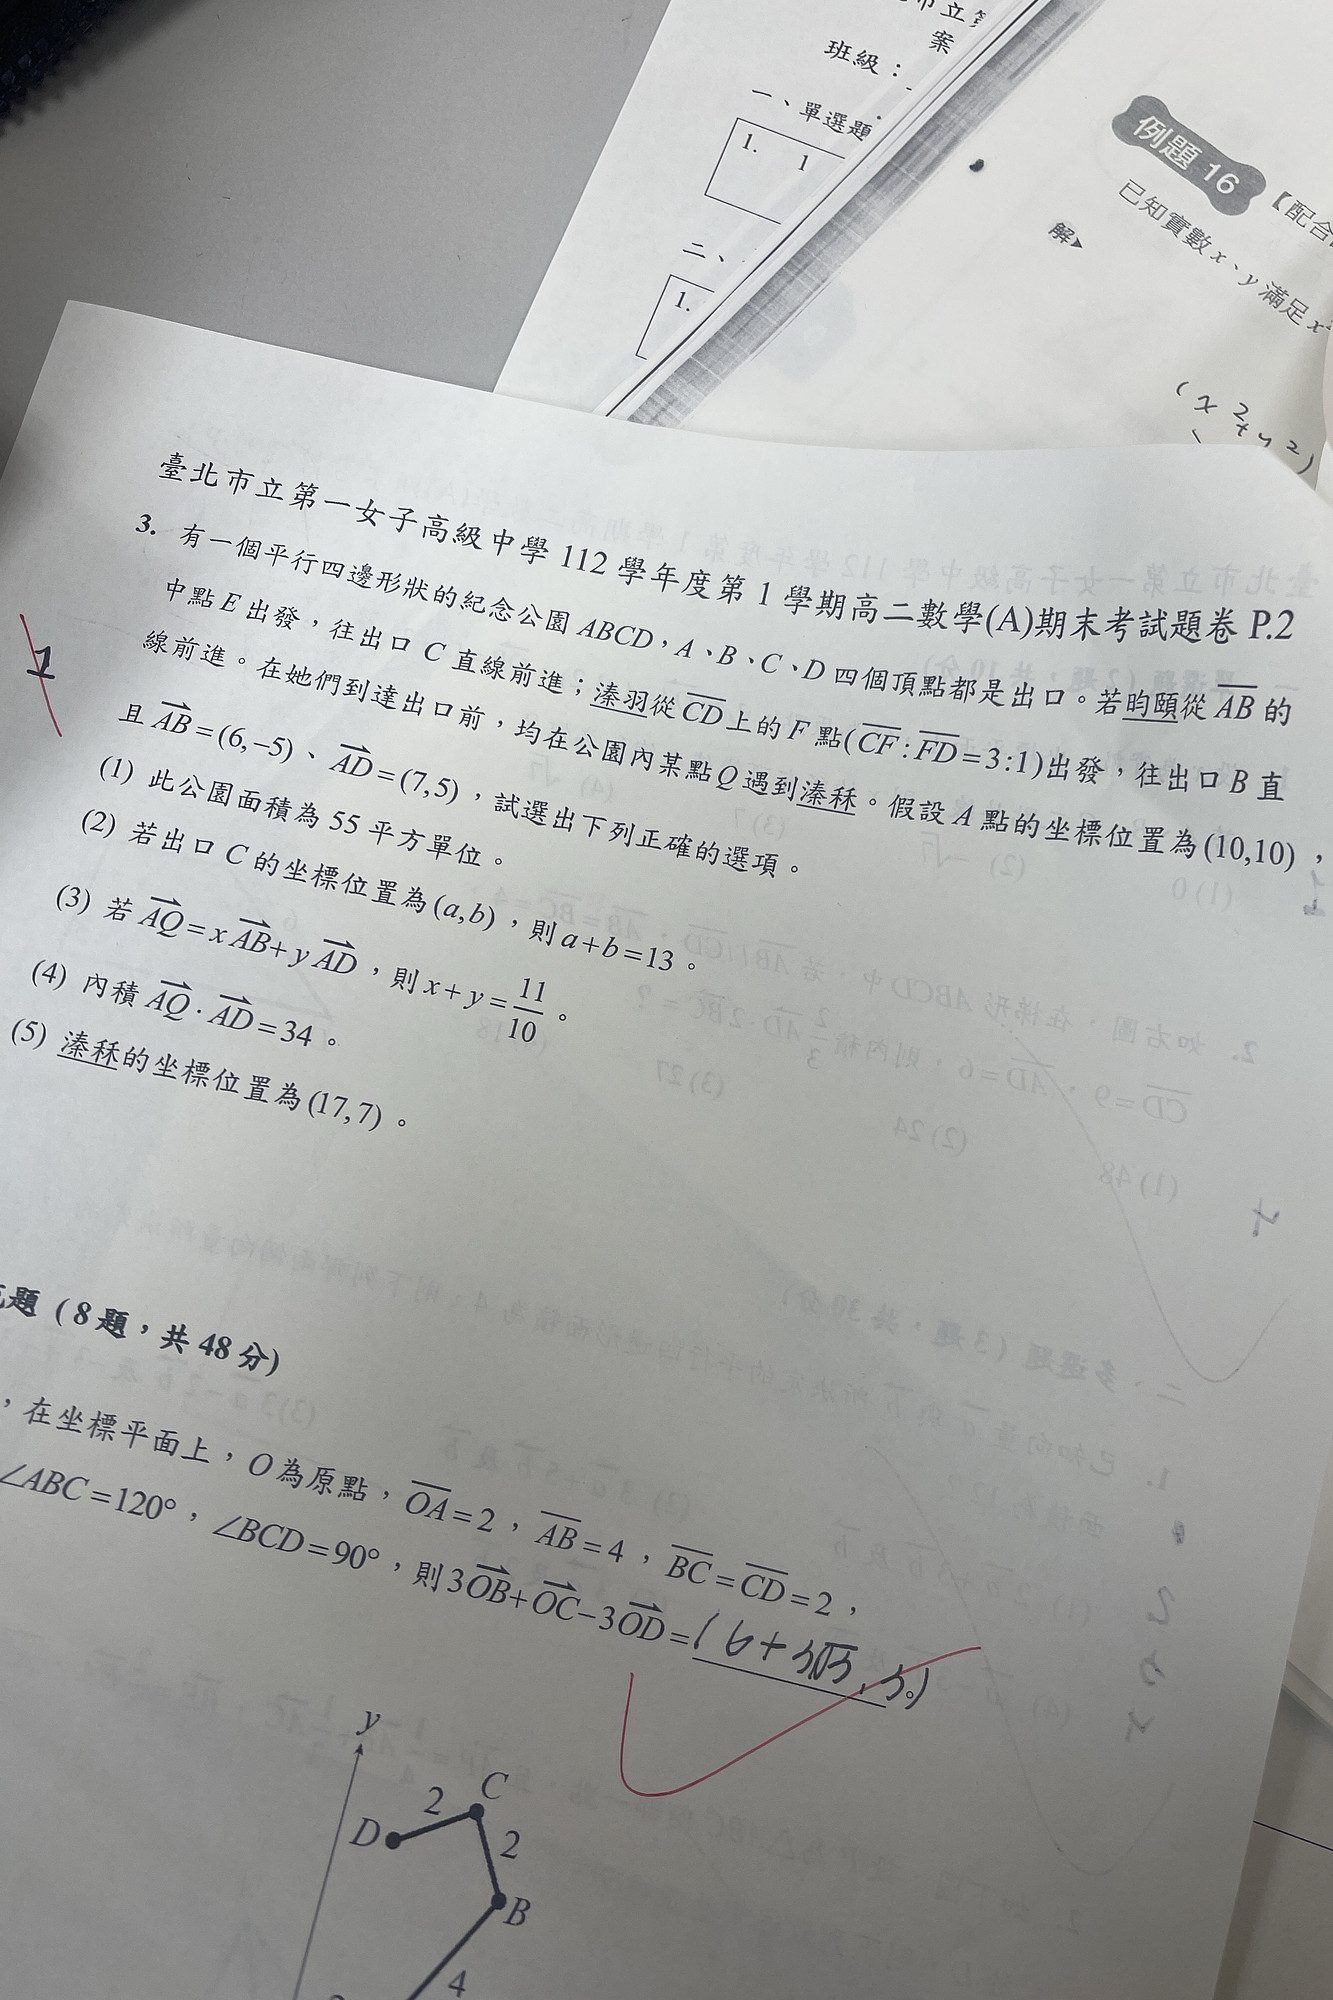 市立第
案
班級：
一、單選題
1. 1
二、
1.
例題 16 【配合
已知實數 x、y 滿足 x²
解
(x²+y²)
臺北市立第一女子高級中學 112 學年度第 1 學期高二數學(A)期末考試題卷 P.2
3. 有一個平行四邊形狀的紀念公園 ABCD，A、B、C、D 四個頂點都是出口。若昀頤從 \overline{AB} 的
中點 E 出發，往出口 C 直線前進；溱羽從 \overline{CD} 上的 F 點(\overline{CF}:\overline{FD}=3:1)出發，往出口 B 直
線前進。在她們到達出口前，均在公園內某點 Q 遇到溱秝。假設 A 點的坐標位置為 (10,10)，
且 \overrightarrow{AB}=(6,−5)、\overrightarrow{AD}=(7,5)，試選出下列正確的選項。
(1) 此公園面積為 55 平方單位。
(2) 若出口 C 的坐標位置為 (a,b)，則 a+b=13。
(3) 若 \overrightarrow{AQ}=x\overrightarrow{AB}+y\overrightarrow{AD}，則 x+y=\frac{11}{10}。
(4) 內積 \overrightarrow{AQ}·\overrightarrow{AD}=34。
(5) 溱秝的坐標位置為 (17,7)。
1
題 (8 題，共 48 分)
，在坐標平面上，O 為原點，\overline{OA}=2，\overline{AB}=4，\overline{BC}=\overline{CD}=2，
∠ABC=120°，∠BCD=90°，則 3\overrightarrow{OB}+\overrightarrow{OC}−3\overrightarrow{OD}=(6+3√3, 3)。
y
C
2
D
2
B
4